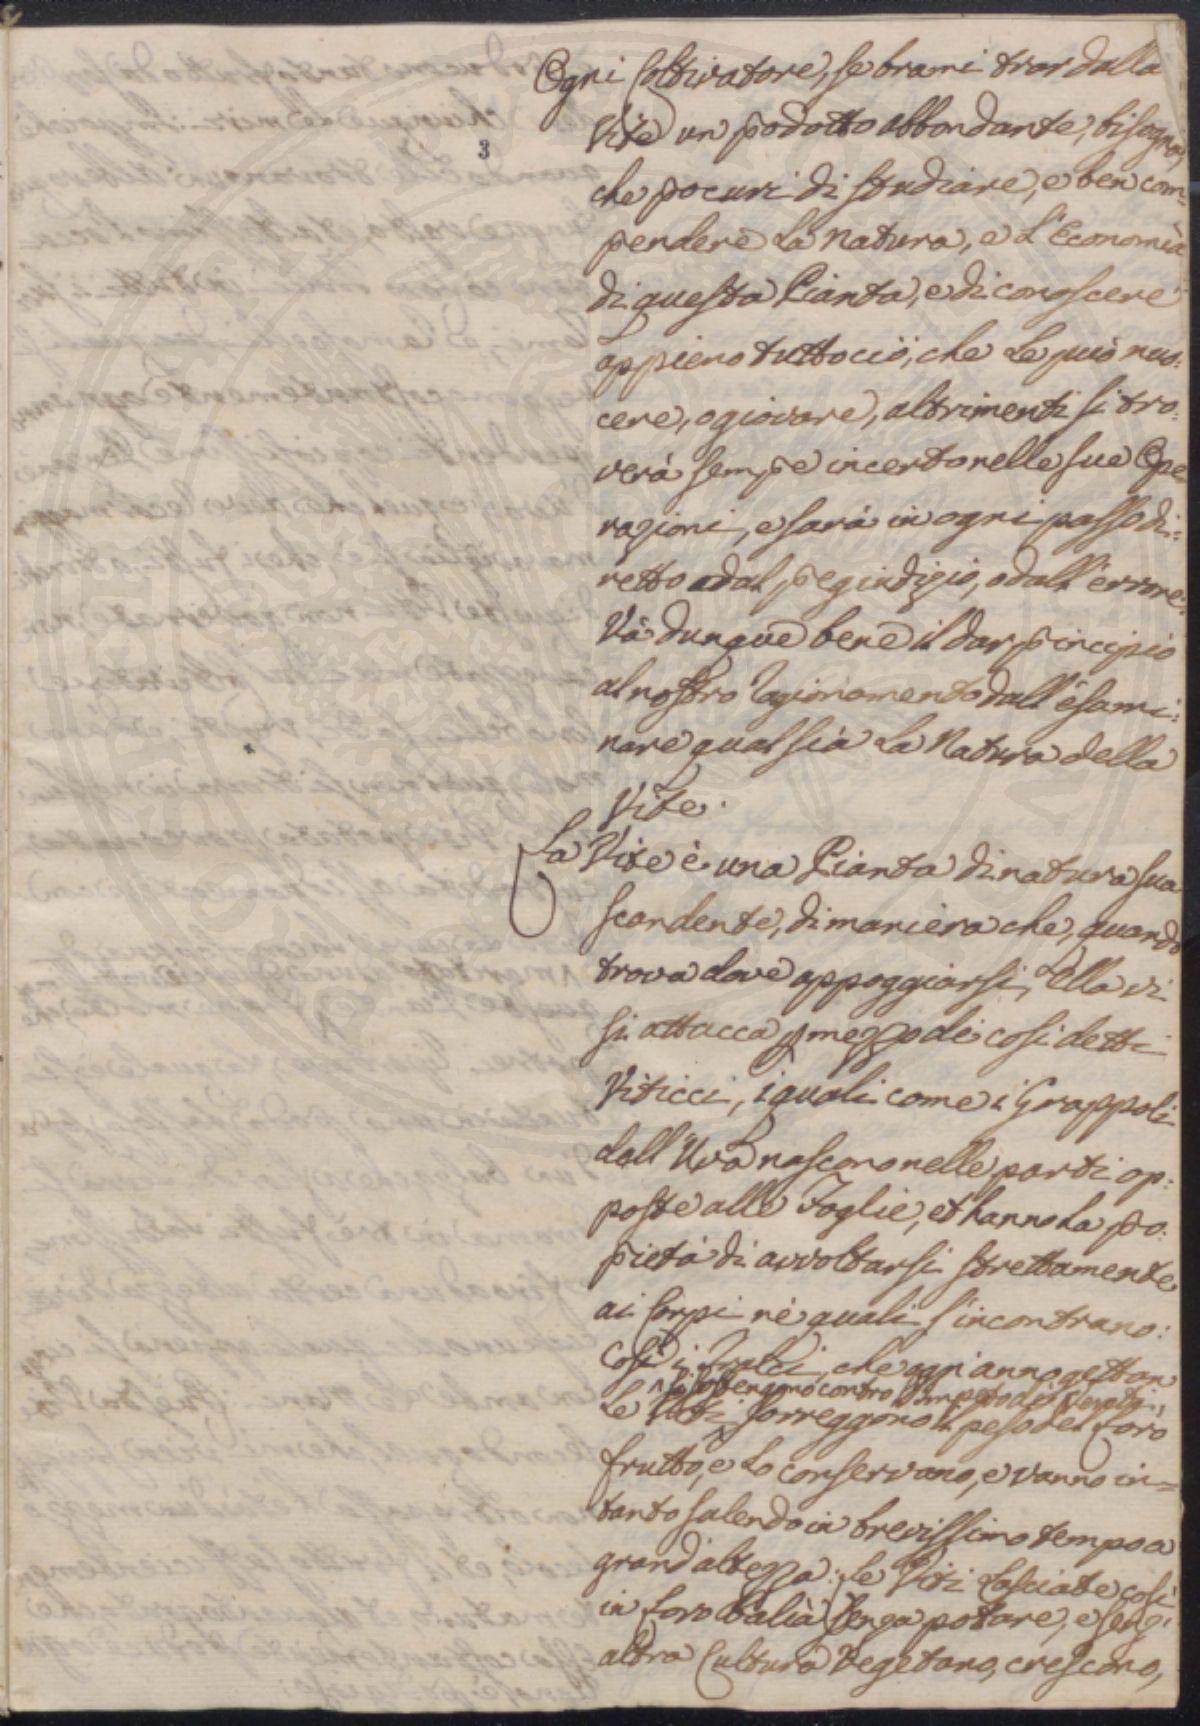 3
Ogni Coltivatore, se brami trar dalla
Vite un prodotto abbondante, bisogna,
che procuri di studiare, e ben com=
prendere la Natura, e l'Economia
di questa Pianta, e di conoscere
appieno tuttociò, che le può nuo:
cere, o giovare, altrimenti si tro:
verà sempre incerto nelle sue Ope
razioni, e sarà in ogni passo di:
retto o dal pregiudizio, o dall'errore.
Và dunque bene il dar principio
al nostro Ragionamento dall'esami:
nare qual sia la Natura della
Vite.
La Vite è una Pianta di natura sua
scandente, di maniera che, quando
trova dove appoggiarsi, Ella vi
si attacca p mezzo dei così detti
Viticci, i quali come i Grappoli
dell'Uva nascono nelle parti op:
poste alle Foglie, et hanno la pro:
prietà di avvoltarsi strettamente
ai Corpi nè quali s'incontrano:
Così i Tralci, che ogn'anno gettan
si sostengono contro l'impeto dei Venti,
le Viti sorreggono il peso del Loro
frutto, e lo conservano, e vanno in=
tanto salendo in brevissimo tempo a
grand'altezza: Le Viti lasciate così
in Loro balìa senza potare, e senz'
altra Cultura Vegetano, crescono,